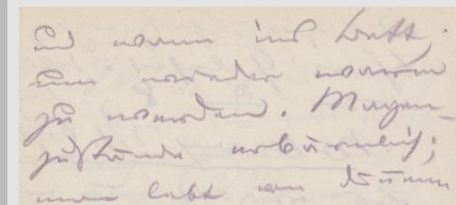 und wenn ins Bett,
um wieder warm
zu werden. Magen-
zustände erbärmlich;
man lebt von dünnem